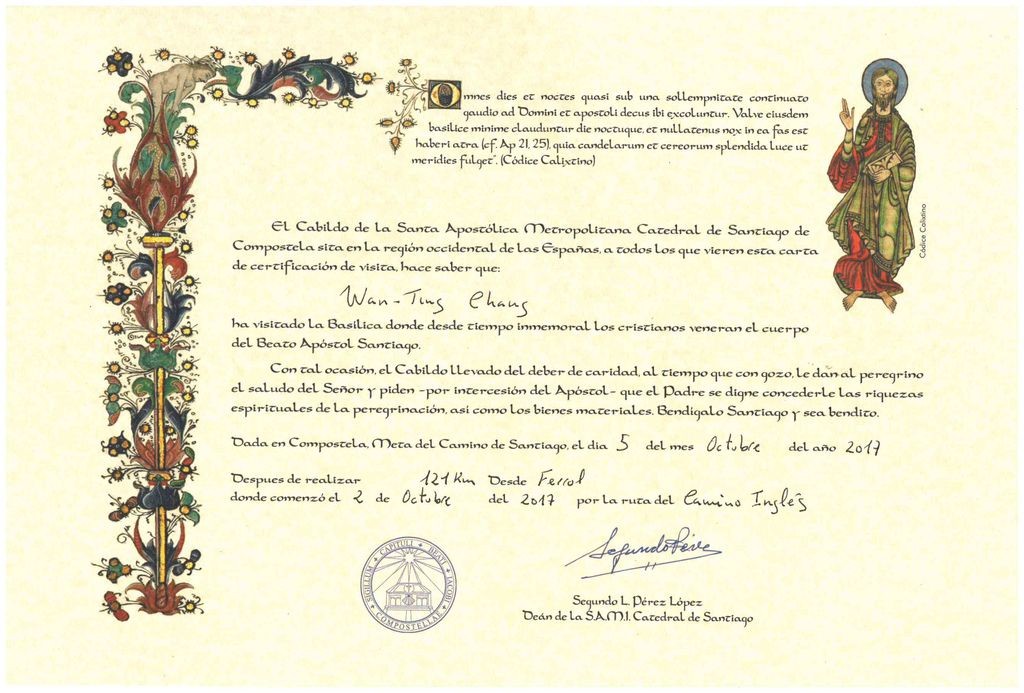 Omnes dies et noctes quasi sub una sollempnitate continuato
gaudio ad Domini et apostoli decus ibi excoluntur. Valve eiusdem
basilice minime clauduntur die noctuque, et nullatenus nox in ea fas est
haberi atra (cf. Ap 21, 25), quia candelarum et cereorum splendida luce ut
meridies fulget". (Códice Calixtino)
Códice Calixtino
El Cabildo de la Santa Apostólica Metropolitana Catedral de Santiago de
Compostela sita en la región occidental de las Españas, a todos los que vieren esta carta
de certificación de visita, hace saber que:
Wan-Ting Chang
ha visitado la Basílica donde desde tiempo inmemoral los cristianos veneran el cuerpo
del Beato Apóstol Santiago.
Con tal ocasión, el Cabildo llevado del deber de caridad, al tiempo que con gozo, le dan al peregrino
el saludo del Señor y piden -por intercesión del Apóstol- que el Padre se digne concederle las riquezas
espirituales de la peregrinación, así como los bienes materiales. Bendígalo Santiago y sea bendito.
Dada en Compostela, Meta del Camino de Santiago, el día 5 del mes Octubre del año 2017
Despues de realizar 121 Km Desde Ferrol
donde comenzó el 2 de Octubre del 2017 por la ruta del Camino Inglés
SIGILLUM CAPITULI BEATI IACOBI COMPOSTELLAE
Segundo Pérez
Segundo L. Pérez López
Deán de la S.A.M.I. Catedral de Santiago